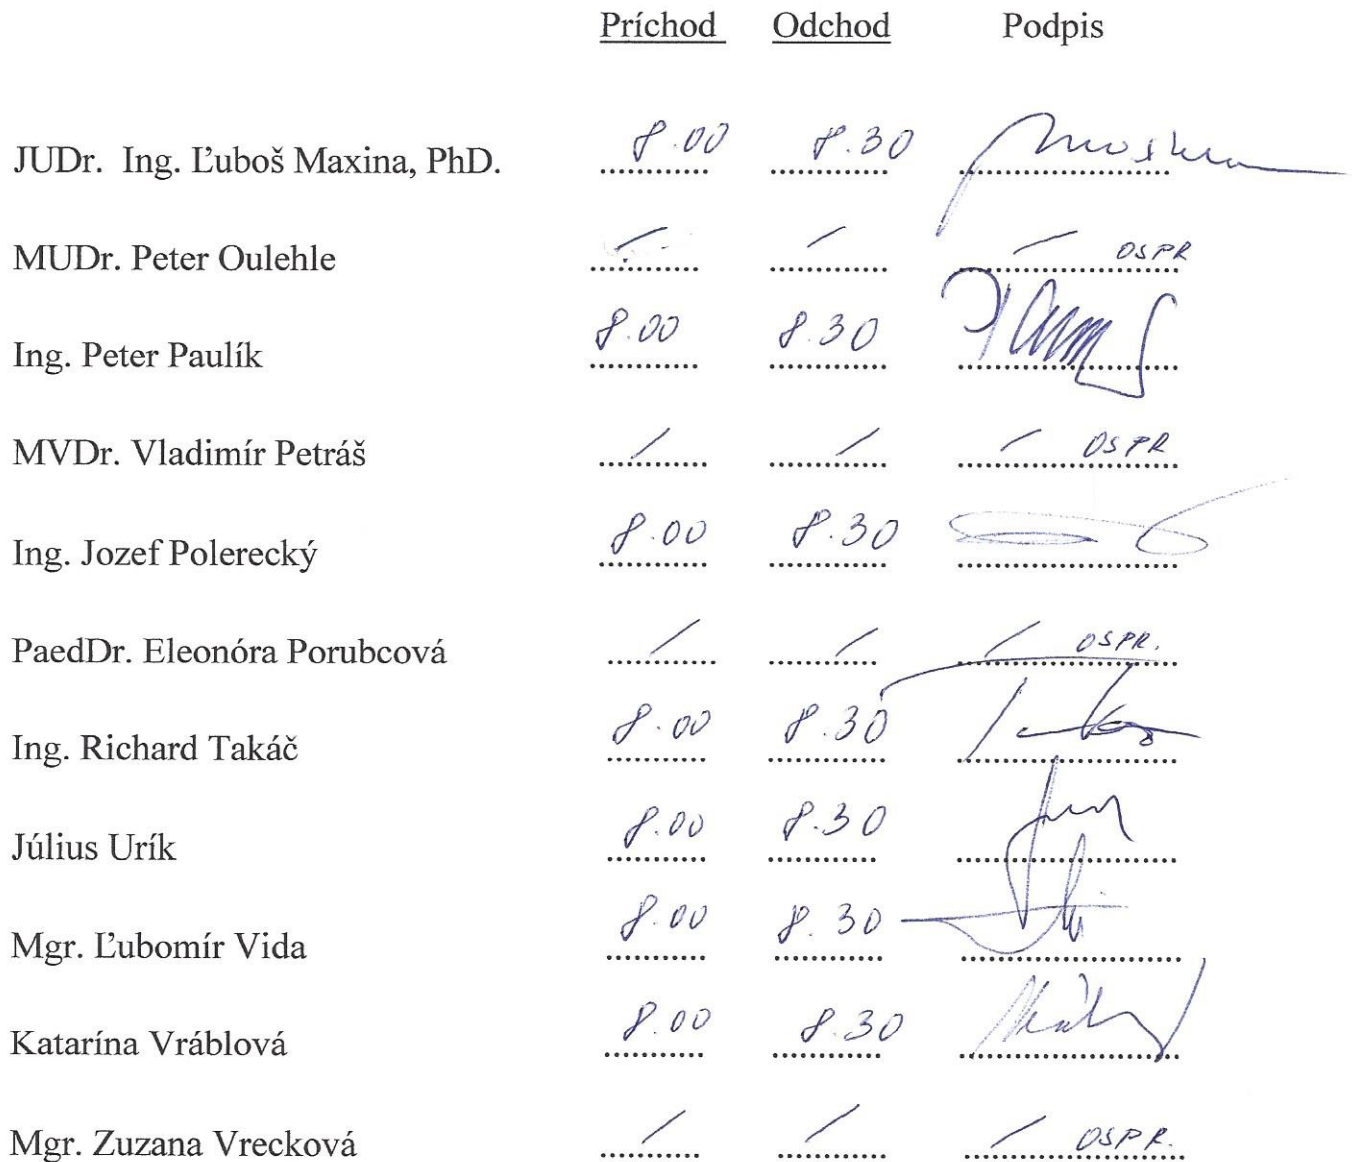 Príchod Odchod Podpis
JUDr. Ing. Ľuboš Maxina, PhD. 8.00 8.30
MUDr. Peter Oulehle / / / OSPR
Ing. Peter Paulík 8.00 8.30
MVDr. Vladimír Petráš / / / OSPR
Ing. Jozef Polerecký 8.00 8.30
PaedDr. Eleonóra Porubcová / / / OSPR.
Ing. Richard Takáč 8.00 8.30
Július Urík 8.00 8.30
Mgr. Ľubomír Vida 8.00 8.30
Katarína Vráblová 8.00 8.30
Mgr. Zuzana Vrecková / / / OSPR.